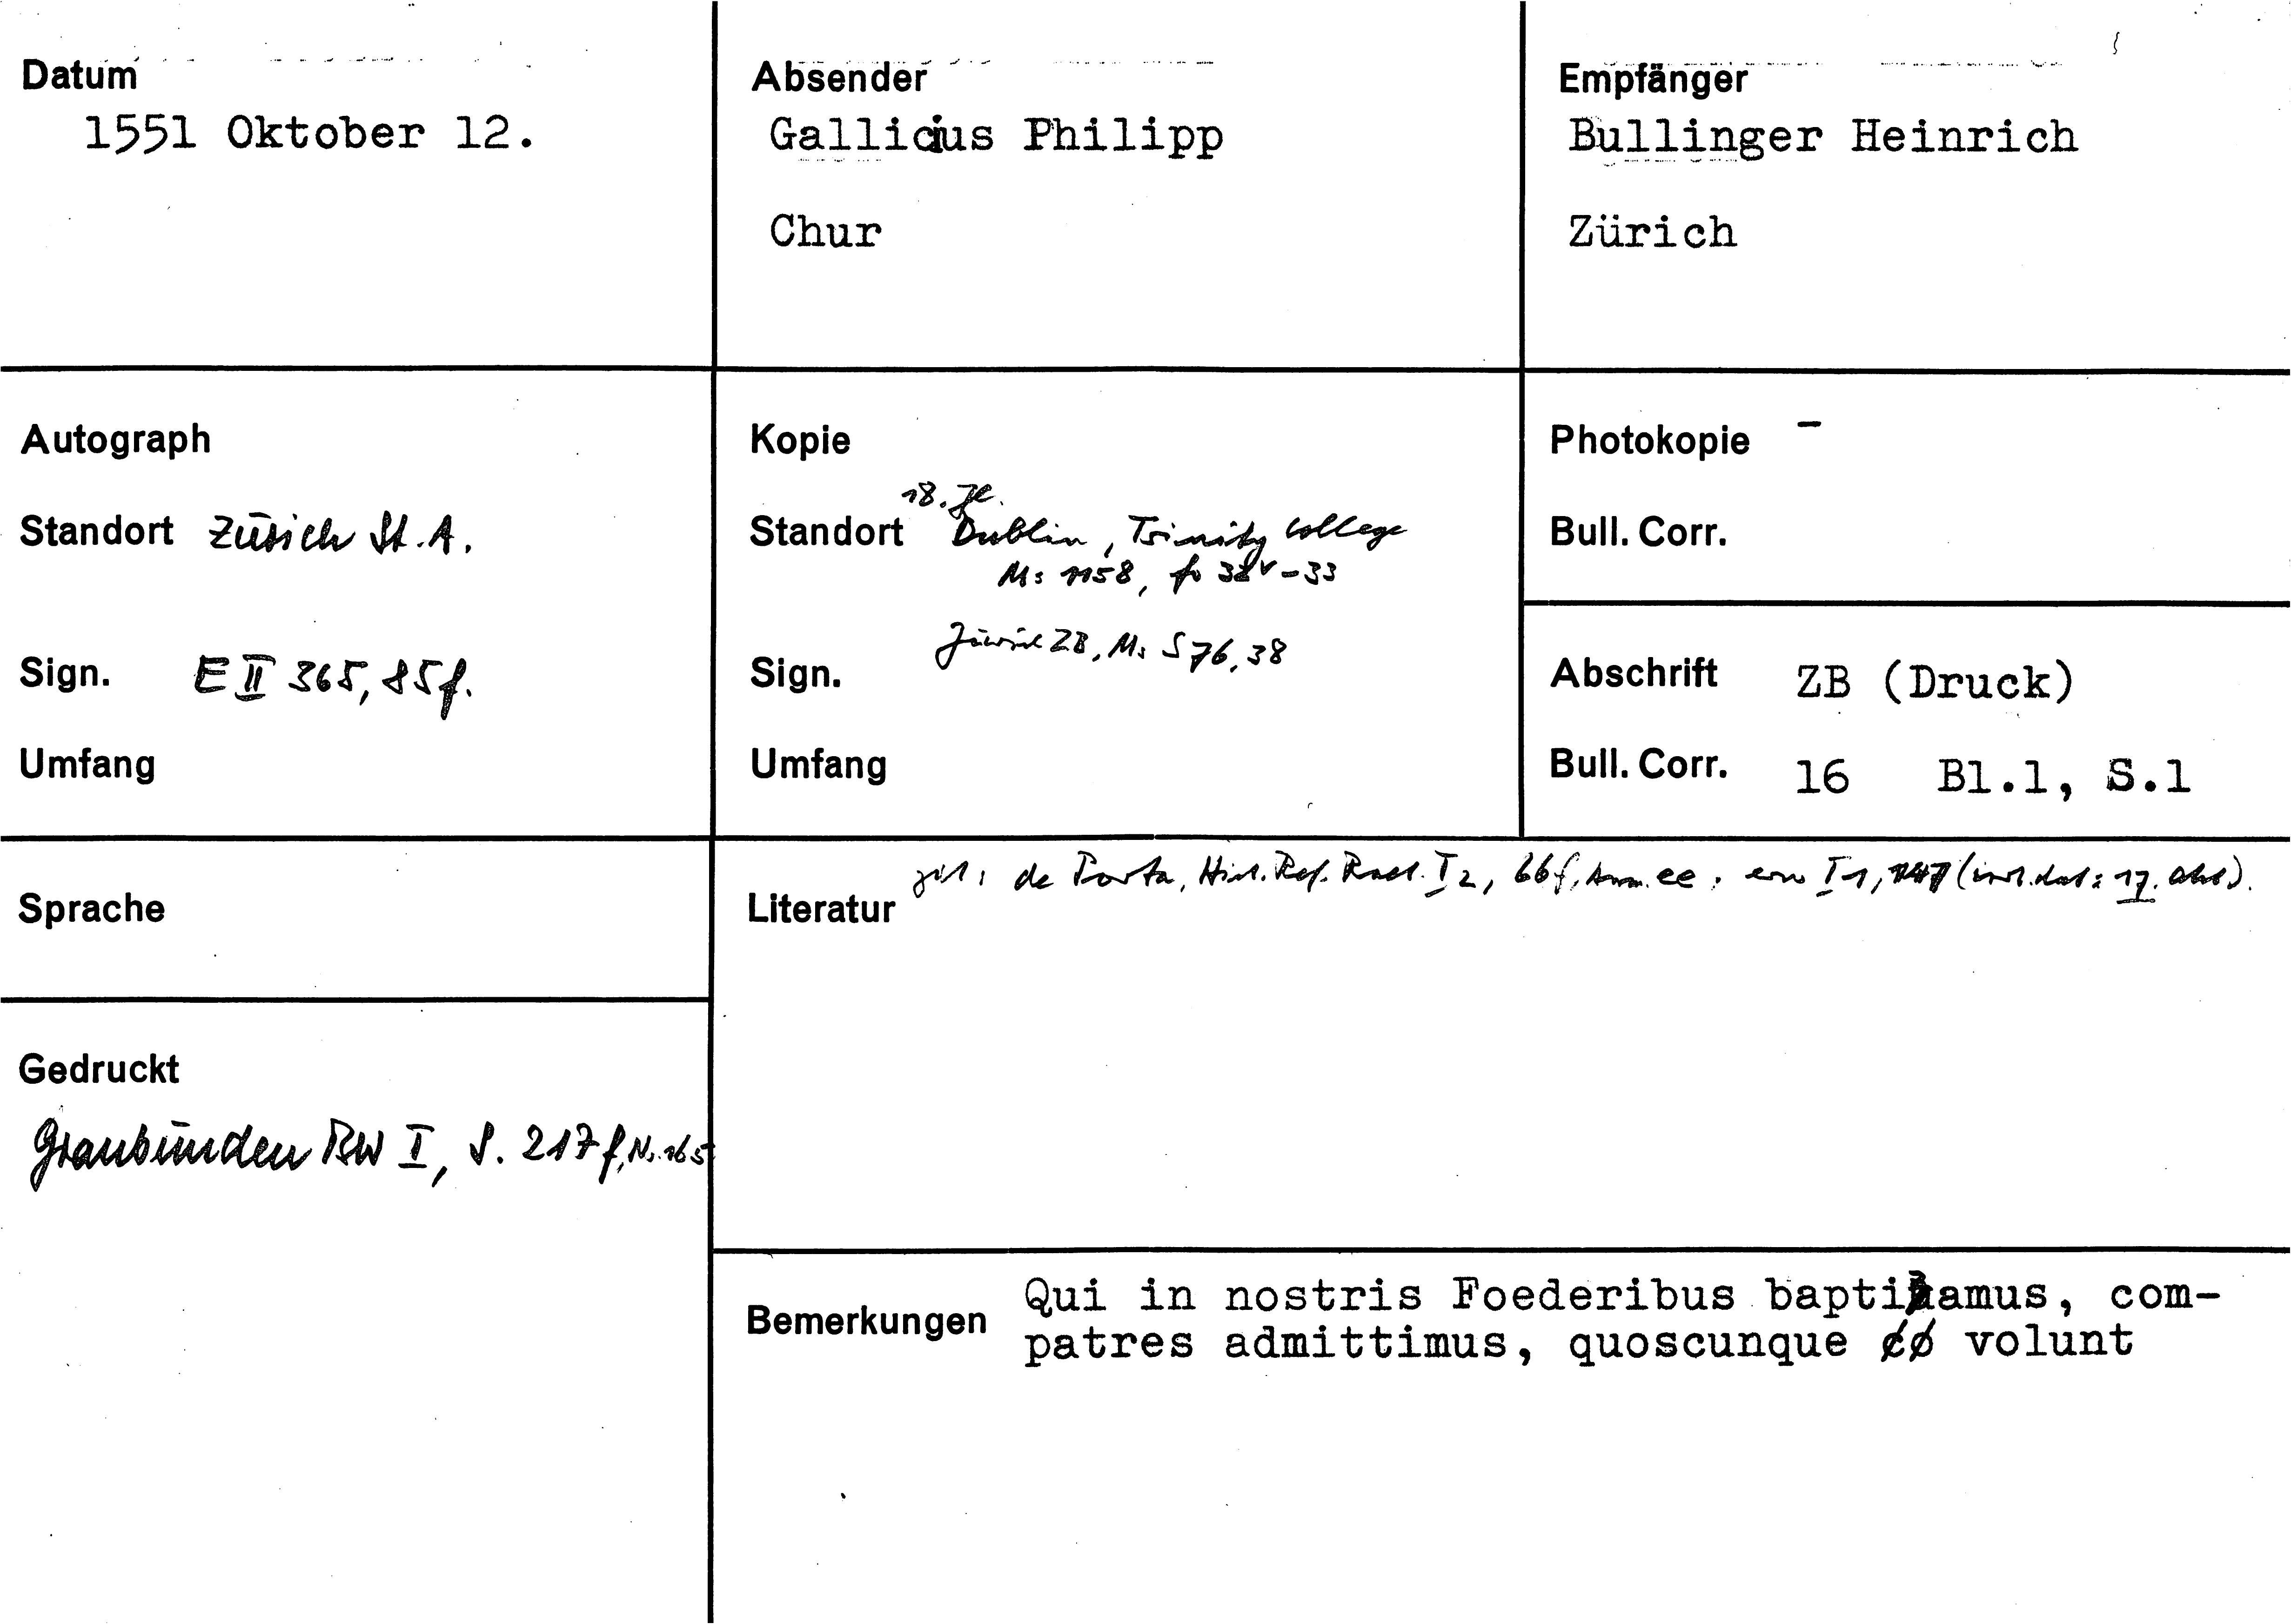 Datum
1551 Oktober 12.
Absender
Gallicius Philipp
Chur
Empfänger
Bullinger Heinrich
Zürich
Autograph
Standort Zürich St. A.
Sign. E II 365, 85f.
Umfang
Kopie
18. Jh.
Standort Dublin, Trinity College
Ms 1158, fo 32v-33
Zürich ZB, Ms S 76, 38
Sign.
Umfang
Photokopie -
Bull. Corr.
Abschrift ZB (Druck)
Bull. Corr. 16 Bl.1, S.1
Sprache
Literatur zit: de Porta, Hist. Ref. Raet. I 2, 66f, Anm. ee; I 1, (dat: 17. Okt).
Gedruckt
Graubünden BW I, S. 217f, Nr. 165
Bemerkungen Qui in nostris Foederibus baptizamus, com-
patres admittimus, quoscunque volunt